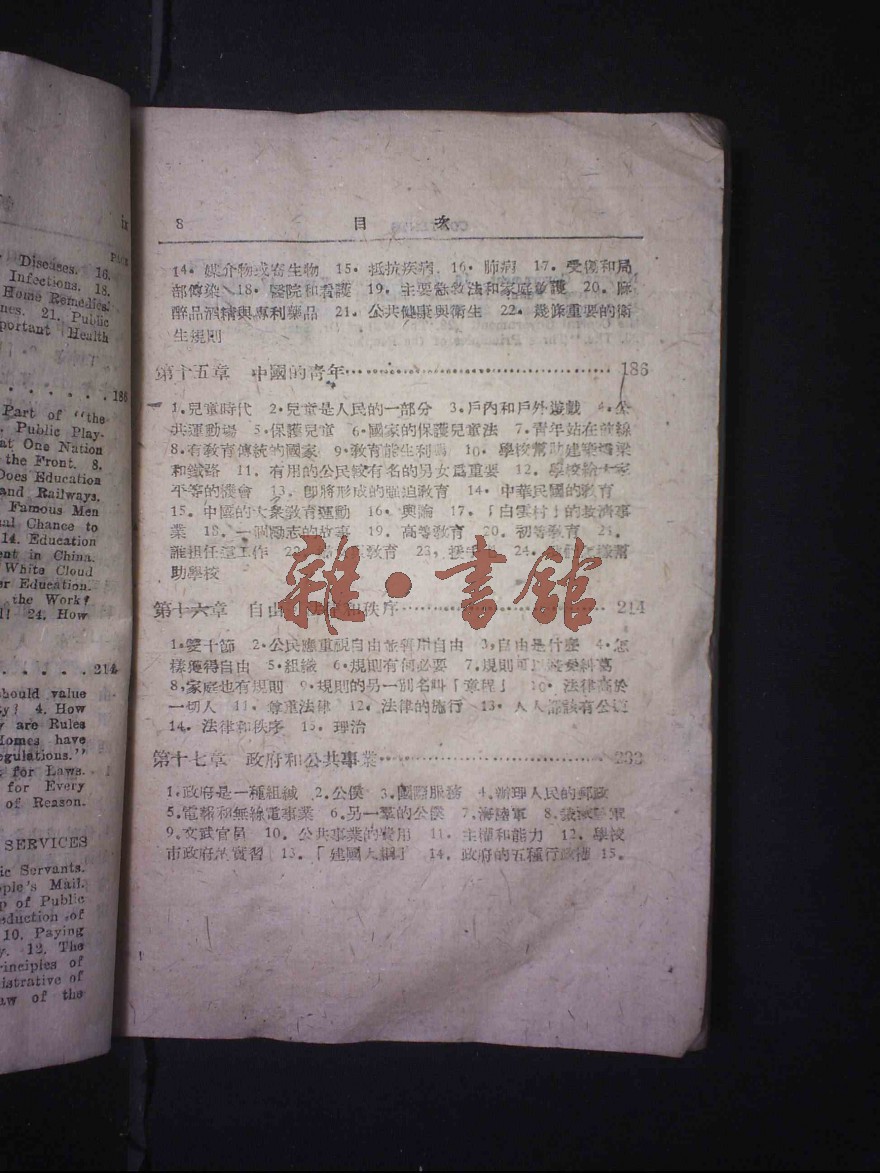 ix
Diseases. 16.
Infections. 18.
Home Remedies.
21. Public
Health
186
Part of "the
Public Play-
at One Nation
the Front. 8.
Does Education
and Railways.
Famous Men
Chance to
14. Education
in China.
White Cloud
Education.
the Work?
24. How
214
should value
4. How
are Rules
Homes have
for Laws.
for Every
of Reason.
SERVICES
Servants.
Mail.
of Public
of
10. Paying
12. The
Principles of
of
of the
8 目次
14. 媒介物或寄生物 15. 抵抗疾病 16. 肺病 17. 受傷和局
部傳染 18. 醫院和看護 19. 主要急救法和家庭救護 20. 麻
醉品酒精與專利藥品 21. 公共健康與衛生 22. 幾條重要的衛
生規則
第十五章 中國的青年 186
1.兒童時代 2.兒童是人民的一部分 3.戶內和戶外遊戲 4.公
共運動場 5.保護兒童 6.國家的保護兒童法 7.青年站在前線
8.有教育傳統的國家 9.教育能生利嗎 10. 學校幫助建築橋梁
和鐵路 11. 有用的公民較有名的男女爲重要 12. 學校給大家
平等的機會 13. 即將形成的強迫教育 14. 中華民國的教育
15. 中國的大衆教育運動 16. 輿論 17.「白雲村」的救濟事
業 18. 一個勵志的故事 19. 高等教育 20. 初等教育 21.
誰担任這工作 22. 教育 23. 24. 幫
助學校
第十六章 自由 和秩序 214
1.雙十節 2.公民應重視自由並善用自由 3.自由是什麼 4.怎
樣獲得自由 5.組織 6.規則有何必要 7.規則可 糾葛
8.家庭也有規則 9.規則的另一別名叫「章程」 10. 法律高於
一切人 11. 尊重法律 12. 法律的施行 13. 人人都該有公道
14. 法律和秩序 15. 理治
第十七章 政府和公共事業 233
1.政府是一種組織 2.公僕 3.國際服務 4.辦理人民的郵政
5.電報和無線電事業 6.另一羣的公僕 7.海陸軍 8.裁減 軍
9.文武官員 10. 公共事業的費用 11. 主權和能力 12. 學校
市政府的實習 13.「建國大綱」 14. 政府的五種行政權 15.
雜·書館